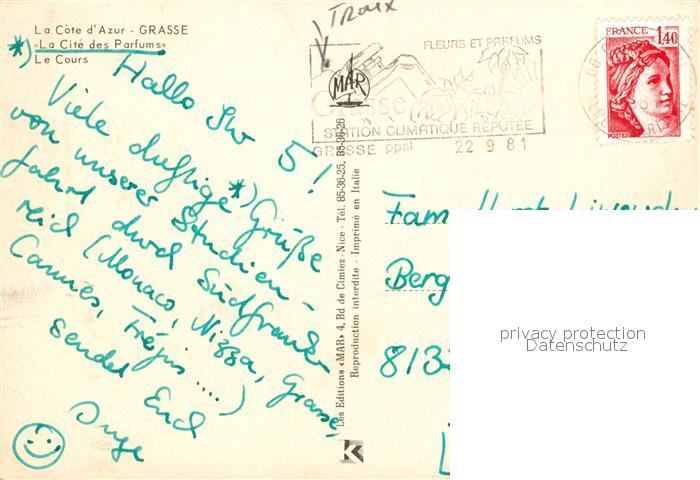 La Côte d'Azur - GRASSE
«La Cité des Parfums»
Le Cours
*)
Hallo Ihr 5!
Viele duftige *) Grüße
von unserer Studien-
fahrt durch Südfrank-
reich (Monaco, Nizza, Grasse,
Cannes, Fréjus ....)
sendet Euch
Inge
FLEURS ET PARFUMS
Grasse
STATION CLIMATIQUE RÉPUTÉE
GRASSE ppal 22 9 81
FRANCE 1,40
POSTES
MAR
Les Editions «MAR» 4, Bd de Cimiez - Nice - Tél. 85-36-25, 85-36-26
Reproduction interdite - Imprimé en Italie
K
Fam
Berg
813
privacy protection
Datenschutz